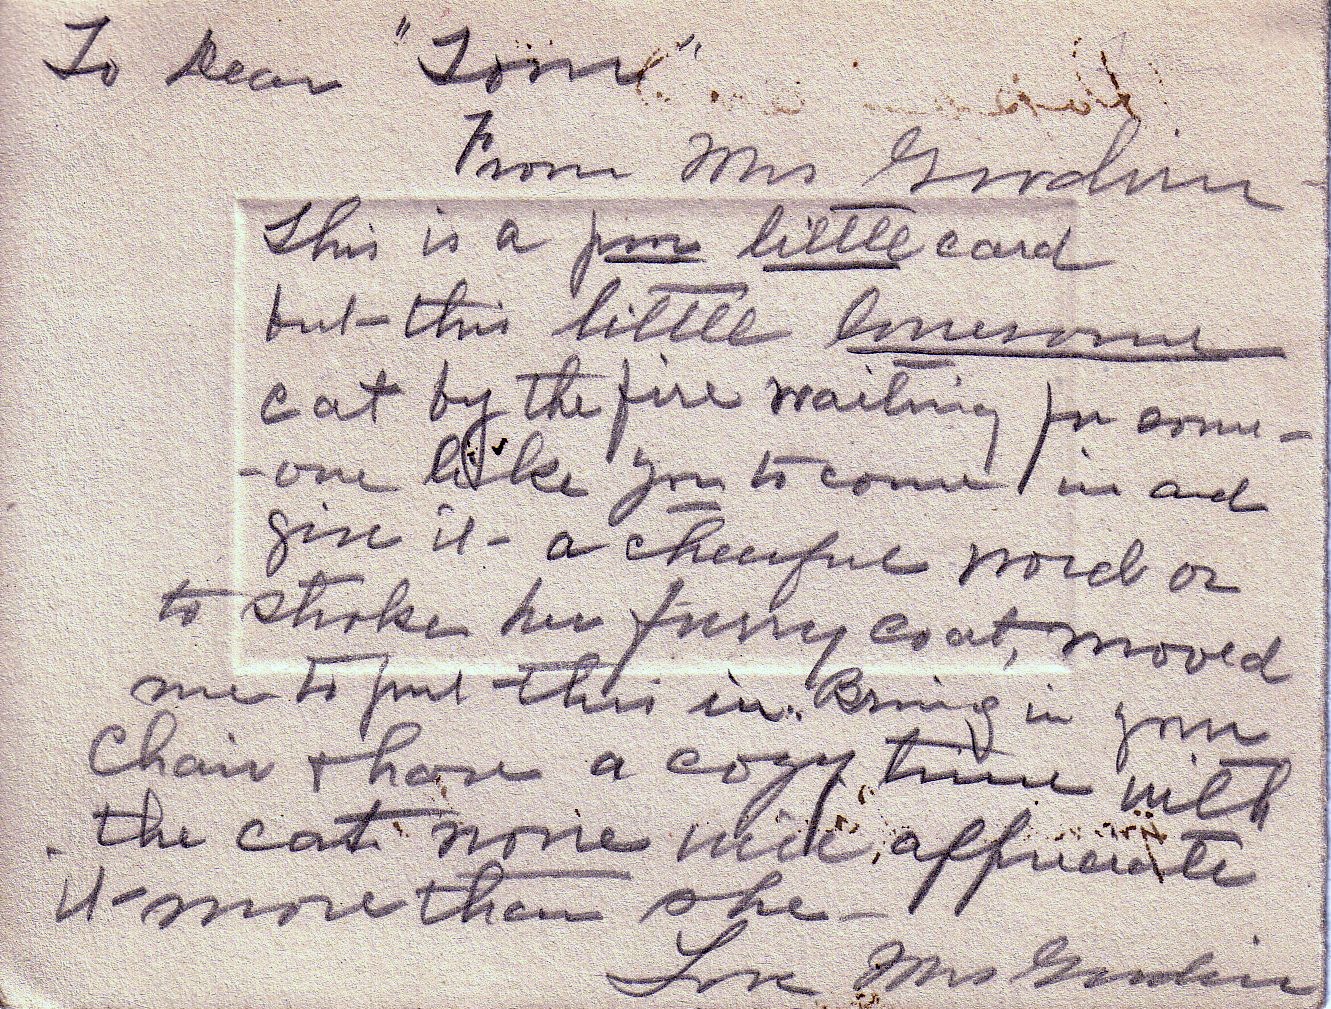 To Dear "Toni"
From Mrs Goodwin
This is a poor little card
but this little lonesome
cat by the fire waiting for some-
-one like you to come in and
give it a cheerful word or
to stroke her furry coat, moved
me to put this in. Bring in your
Chair & have a cozy time with
the cat. none will appreciate
it more than she -
Love Mrs Goodwin